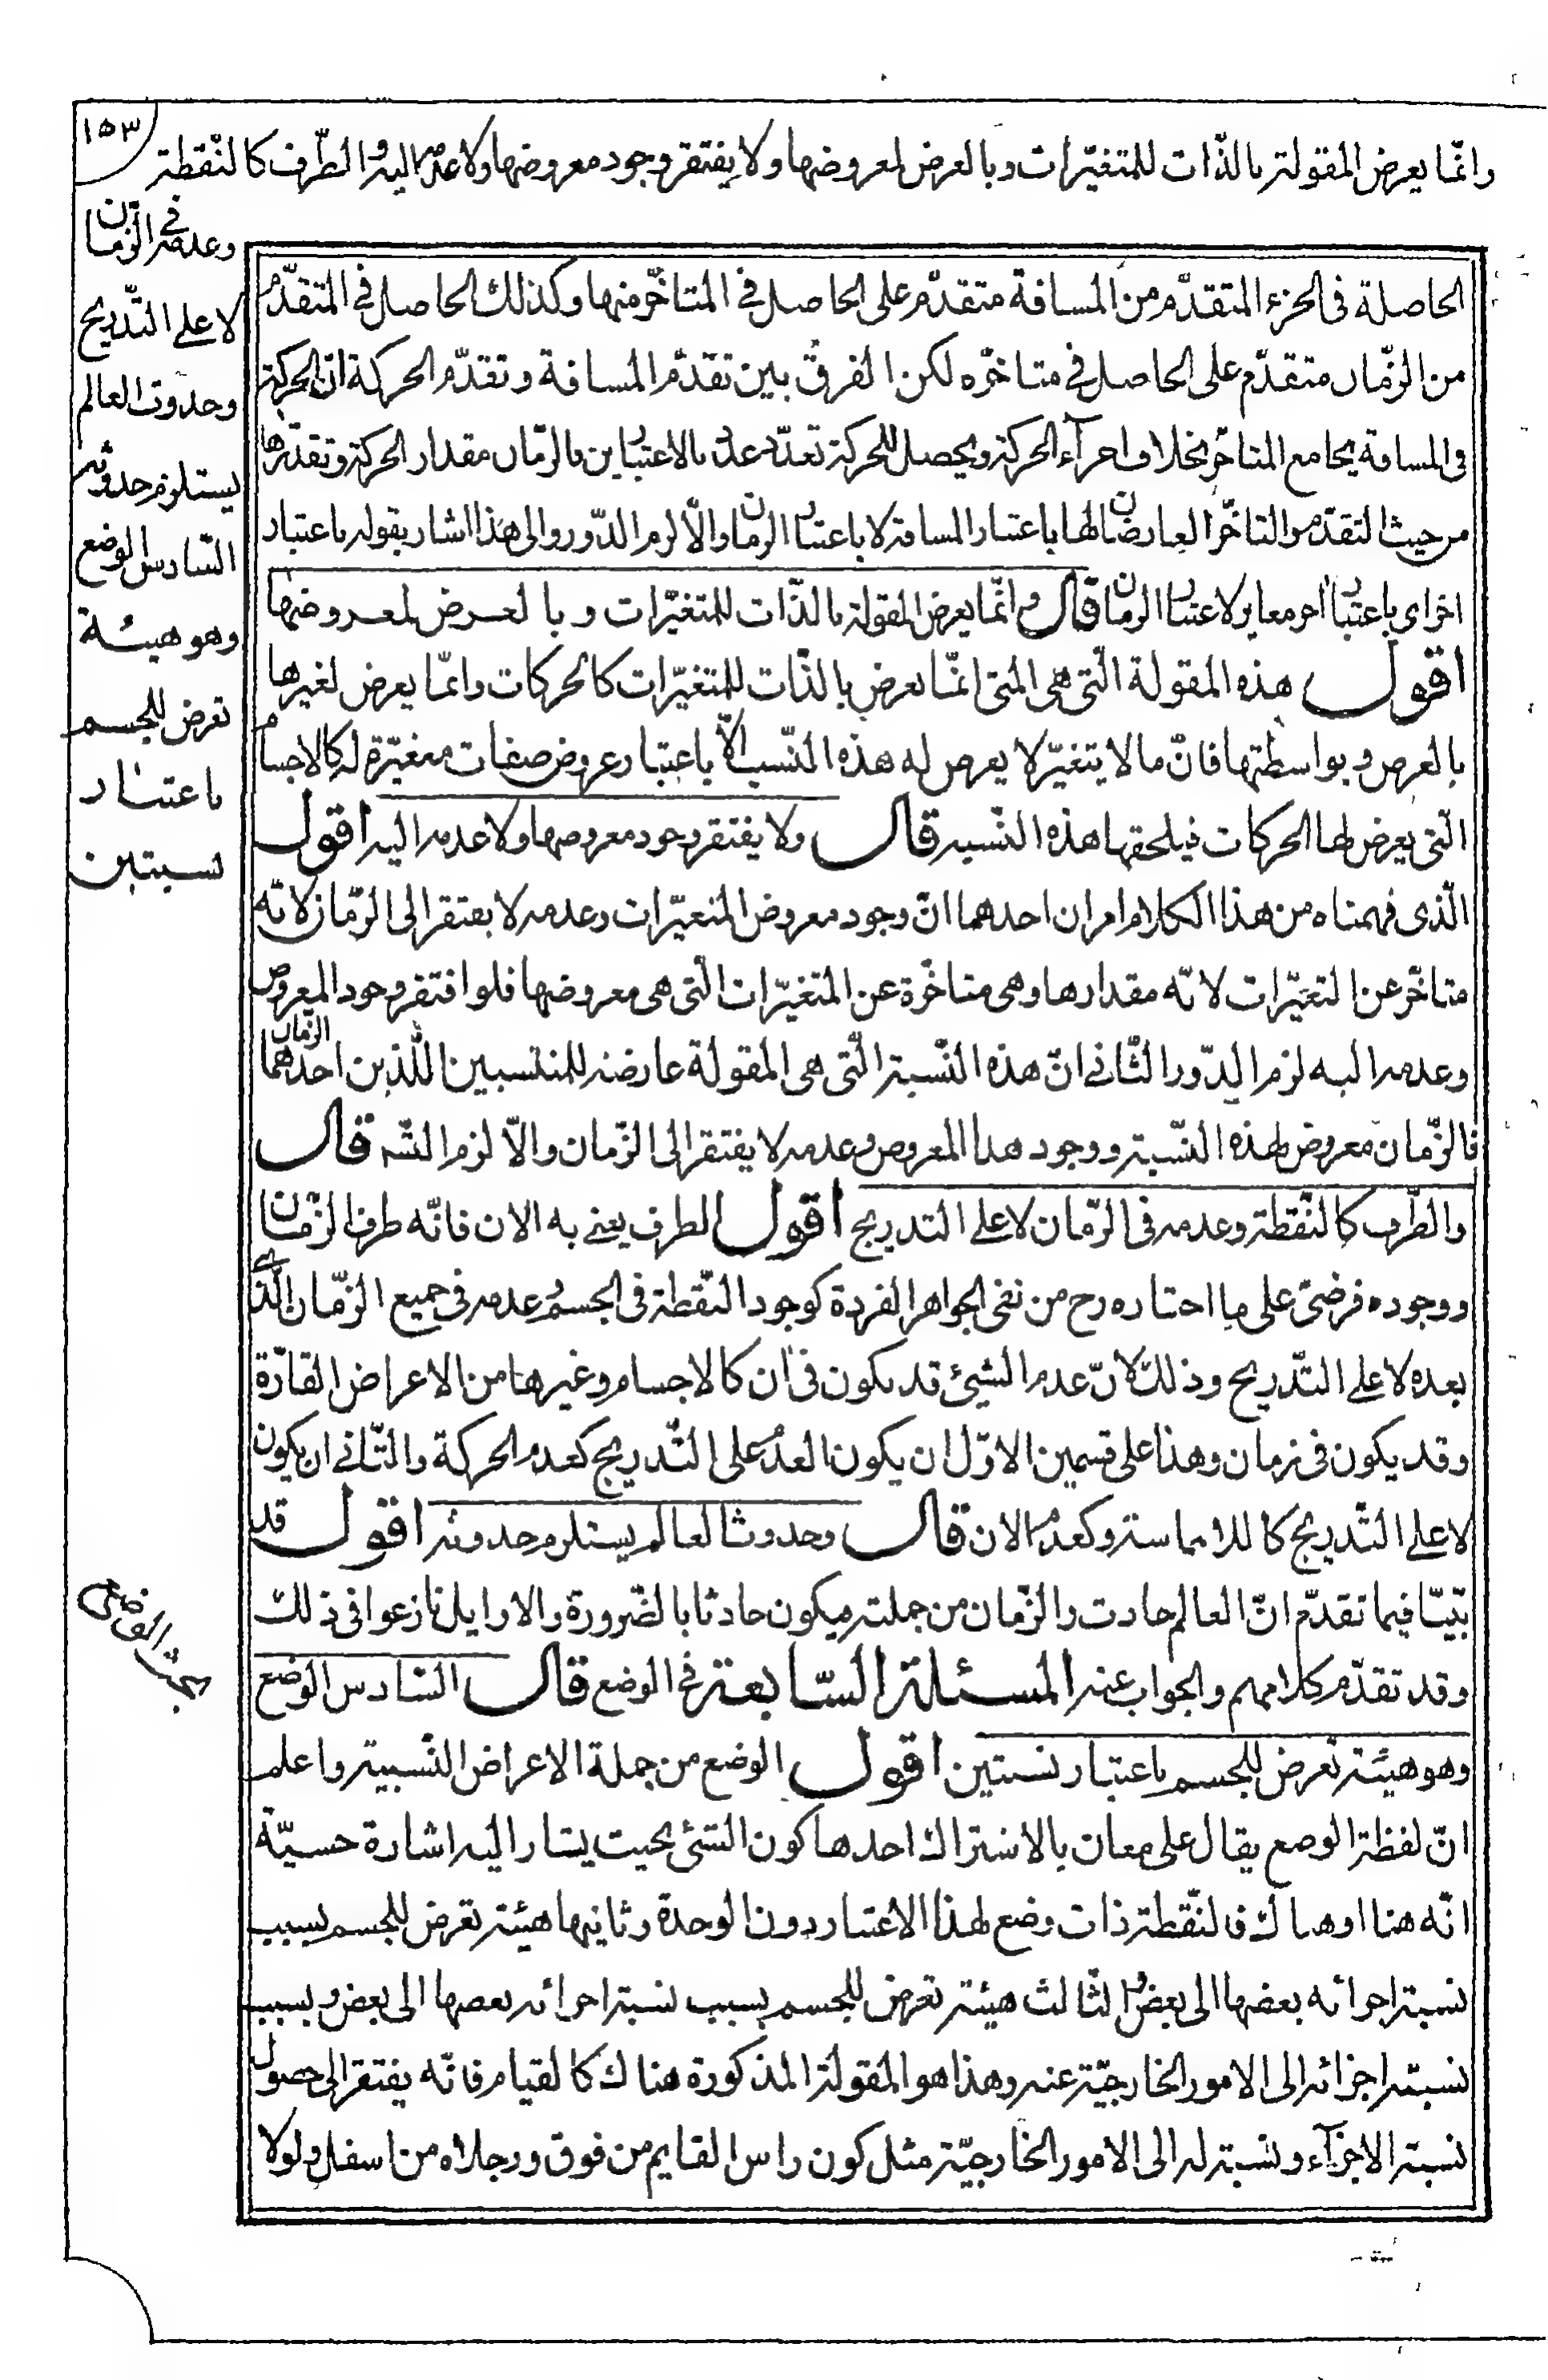 ١٥٣
وانّما يعرض المقولة بالذّات للمتغيّرات وبالعرض لمعروضها ولا يفتقر وجود معروضها ولا عدمه اليه والطّرف كالنّقطة
وعدمه فى الزّمان
لا على التّدريج
وحدوث العالم
يستلزم حدوثه
السّادس الوضع
وهو هيئة
تعرض للجسم
باعتبار
نسبتين
الحاصلة فى الجزء المتقدّم من المسافة متقدّم على الحاصل فى المتاخّر منها وكذلك الحاصل فى المتقدّم
من الزّمان متقدّم على الحاصل فى متاخّره لكن الفرق بين تقدّم المسافة وتقدّم الحركة انّ الحركة
فى المسافة يجامع المتاخّر بخلاف اجزآء الحركة ويحصل للحركة تعدّد عدد بالاعتبارين فالزّمان مقدار الحركة وتقدّرها
من حيث التقدّم والتاخّر العارضان لها باعتبار المسافة لا باعتبار الزمان والّا لزم الدّور والى هذا اشار بقوله باعتبار
اخر اى باعتبار اخر مغاير لاعتبار الزمان قال وانّما يعرض المقولة بالذّات للمتغيّرات وبالعرض لمعروضها
اقول هذه المقولة الّتى هى المتى انّما يعرض بالذّات للمتغيّرات كالحركات وانّما يعرض لغيرها
بالعرض وبواسطتها فانّ ما لا يتغيّر لا يعرض له هذه النّسب الّا باعتبار عروض صفات متغيّرة له كالاجسام
الّتى يعرض لها الحركات فيلحقها هذه النّسبه قال ولا يفتقر وجود معروضها ولا عدمه اليه اقول
الّذى فهمناه من هذا الكلام امران احدهما انّ وجود معروض المتغيّرات وعدمه لا يفتقر الى الزّمان لانّه
متاخّر عن التغيّرات لانّه مقدارها وهى متاخّرة عن المتغيّرات الّتى هى معروضها فلو افتقر وجود المعروض
وعدمه اليه لزم الدّور الثّانى انّ هذه النّسبة الّتى هى المقولة عارضة للمنتسبين اللّذين احدهما الزمان
فالزّمان معروض لهذه النّسبة ووجود هذا المعروض وعدمه لا يفتقر الى الزّمان والّا لزم التسّه قال
والطّرف كالنّقطة وعدمه فى الزّمان لا على التدريج اقول الطرف يعنى به الان فانّه طرف الزّمان
ووجوده فرضىّ على ما اختاره رح من نفى الجواهر الفردة كوجود النّقطة فى الجسم وعدمه فى جميع الزّمان الّذى
بعده لا على التّدريج وذلك لانّ عدم الشيئ قد يكون فى ان كالاجسام وغيرها من الاعراض القارّة
وقد يكون فى زمان وهذا على قسمين الاوّل ان يكون العدم على التّدريج كعدم الحركة والثّانى ان يكون
لا على التّدريج كاللامماسة وكعدم الان قال وحدوث العالم يستلزم حدوثه اقول قد
بيّنّا فيما تقدّم انّ العالم حادث والزّمان من جملته فيكون حادثا بالضّرورة والاوايل نازعوا فى ذلك
وقد تقدّم كلامهم والجواب عنه المسئلة السّابعة فى الوضع قال السّادس الوضع
وهو هيئة تعرض للجسم باعتبار نسبتين اقول الوضع من جملة الاعراض النّسبية واعلم
انّ لفظة الوضع يقال على معان بالاشتراك احدها كون الشئ بحيث يشار اليه اشارة حسيّة
انّه هنا او هناك فالنّقطة ذات وضع لهذا الاعتبار دون الوحدة وثانيها هيئة تعرض للجسم بسبب
نسبة اجزائه بعضها الى بعض والثّالث هيئة تعرض للجسم بسبب نسبة اجزائه بعضها الى بعض وبسبب
نسبة اجزائه الى الامور الخارجيّة عنه وهذا هو المقولة المذكورة هناك كالقيام فانّه يفتقر الى حصول
نسبة الاجزآء ونسبة له الى الامور الخارجيّة مثل كون راس القايم من فوق ورجلاه من اسفل ولولا
بحث الوضع